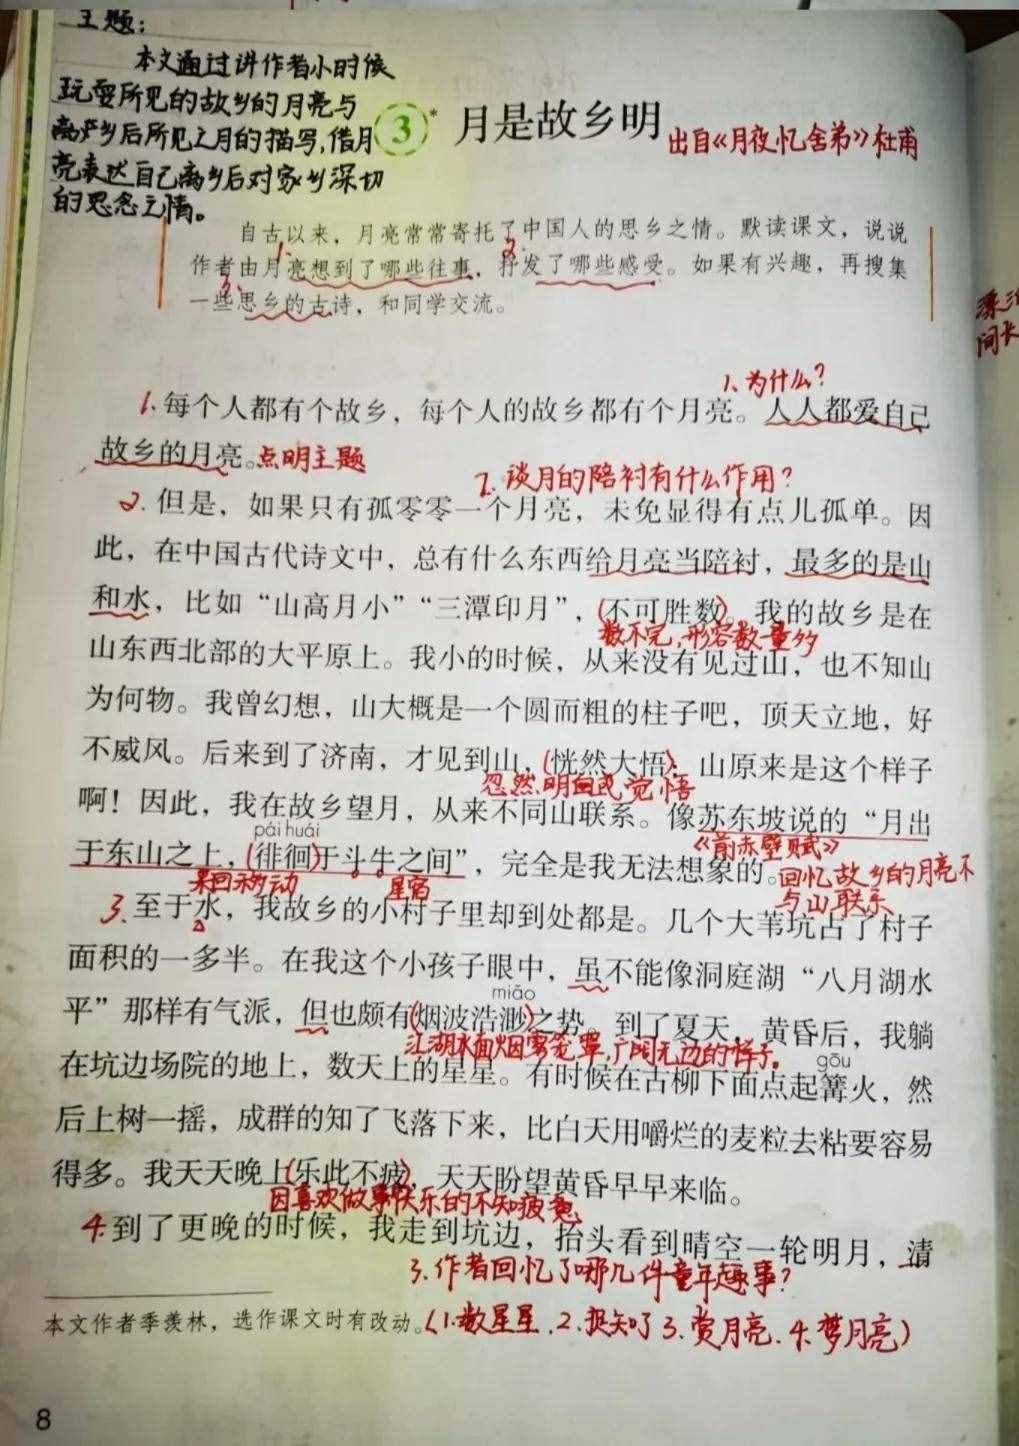 主题:
本文通过讲作者小时候
玩耍所见的故乡的月亮与
离产乡后所见之月的描写,借月
亮表达自己离乡后对家乡深切
的思念之情。
3 * 月是故乡明
出自《月夜忆舍弟》杜甫
自古以来，月亮常常寄托了中国人的思乡之情。默读课文，说说
1. 2.
作者由月亮想到了哪些往事，抒发了哪些感受。如果有兴趣，再搜集
3.
一些思乡的古诗，和同学交流。
间长
1.为什么?
1.每个人都有个故乡，每个人的故乡都有个月亮。人人都爱自己
故乡的月亮。点明主题
2.谈月的陪衬有什么作用?
2.但是，如果只有孤零零一个月亮，未免显得有点儿孤单。因
此，在中国古代诗文中，总有什么东西给月亮当陪衬，最多的是山
和水，比如“山高月小”“三潭印月”，(不可胜数)。我的故乡是在
数不完,形容数量多
山东西北部的大平原上。我小的时候，从来没有见过山，也不知山
为何物。我曾幻想，山大概是一个圆而粗的柱子吧，顶天立地，好
不威风。后来到了济南，才见到山，(恍然大悟)：山原来是这个样子
忽然明白或觉悟
啊！因此，我在故乡望月，从来不同山联系。像苏东坡说的“月出
pái huái
《前赤壁赋》
于东山之上，(徘徊)于斗牛之间”，完全是我无法想象的。回忆故乡的月亮不
来回移动 星宿 与山联系
3.至于水，我故乡的小村子里却到处都是。几个大苇坑占了村子
面积的一多半。在我这个小孩子眼中，虽不能像洞庭湖“八月湖水
miǎo
平”那样有气派，但也颇有(烟波浩渺)之势。到了夏天，黄昏后，我躺
江湖水面烟雾笼罩,广阔无边的样子。
在坑边场院的地上，数天上的星星。有时候在古柳下面点起篝火，然
gōu
后上树一摇，成群的知了飞落下来，比白天用嚼烂的麦粒去粘要容易
得多。我天天晚上(乐此不疲)，天天盼望黄昏早早来临。
因喜欢做事快乐的不知疲惫
4.到了更晚的时候，我走到坑边，抬头看到晴空一轮明月，清
3.作者回忆了哪几件童年趣事?
本文作者季羡林，选作课文时有改动。(1.数星星.2.捉知了3.赏月亮.4.梦月亮)
8